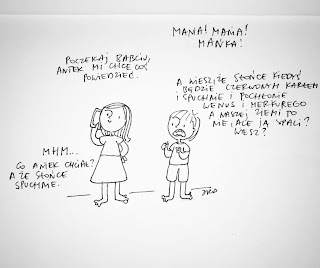 MAMA! MAMA!
MAŃKA!
POCZEKAJ BABCIU,
ANTEK MI CHCE COŚ
POWIEDZIEĆ.
A WIESZ ŻE SŁOŃCE KIEDYŚ
BĘDZIE CZERWONYM KARŁEM
I SPUCHNIE I POCHŁONIE
WENUS I MERKUREGO
A NASZEJ ZIEMI TO
NIE, ALE JĄ SPALI?
WIESZ?
MHM...
CO ANTEK CHCIAŁ?
A ŻE SŁOŃCE
SPUCHNIE.